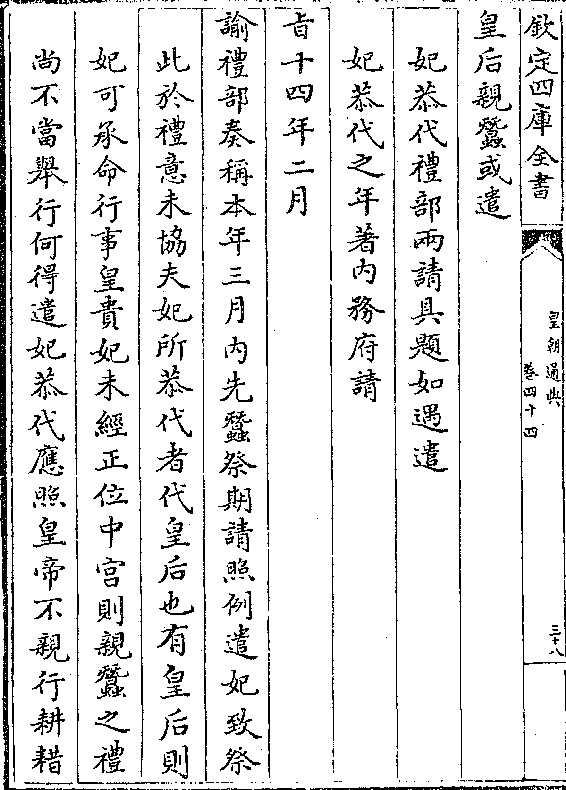 欽定四庫全書
皇朝通典
卷四十四
三十八
皇后親蠶或遣
妃恭代禮部兩請具題如遇遣
妃恭代之年著內務府請
旨十四年二月
諭禮部奏稱本年三月內先蠶祭期請照例遣妃致祭
此於禮意未協夫妃所恭代者代皇后也有皇后則
妃可承命行事皇貴妃未經正位中宮則親蠶之禮
尚不當舉行何得遣妃恭代應照皇帝不親行耕耤